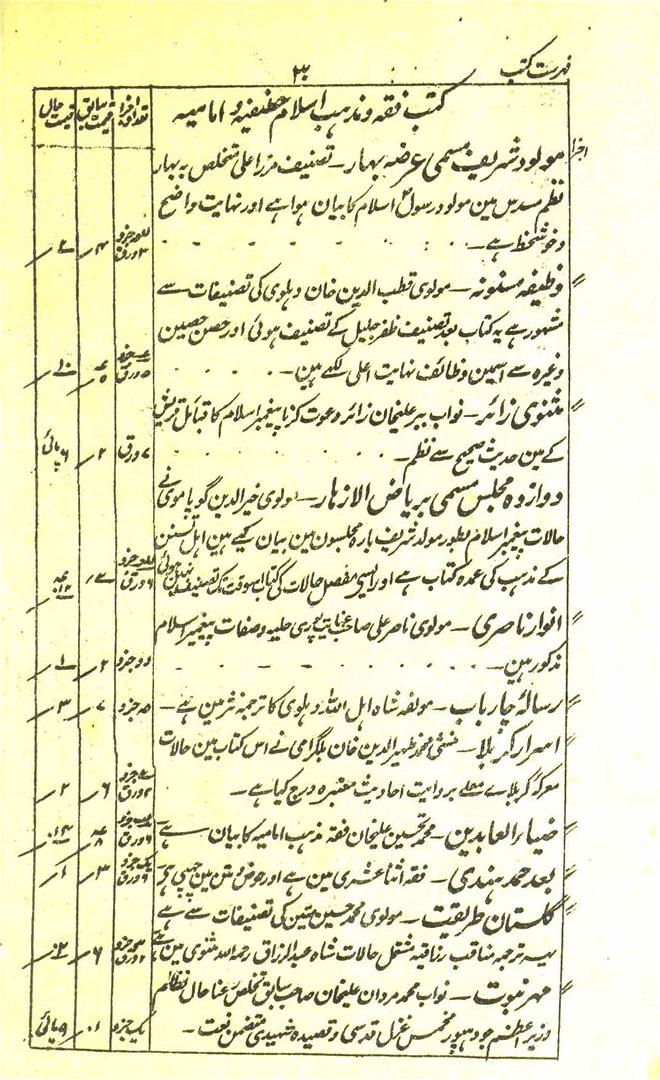 فہرست کتب
۲۰
کتب فقہ و مذہب اسلام حنفیہ و امامیہ
تعداد اجزا
قیمت سابق
قیمت حال
مولود شریف مسمی عرضہ بہار۔ تصنیف مرزا علی متخلص بہ بہار
نظم مسدس مین مولود رسول اسلام کا بیان ہوا ہے اور نہایت واضح
و خوشخط ہے۔
وظیفہ مسنونہ۔ مولوی قطب الدین خان دہلوی کی تصنیفات سے
مشہور ہے یہ کتاب بعد تصنیف ظفر جلیل کے تصنیف ہوئی اور حصن حصین
وغیرہ سے اسمین وظائف نہایت اعلی لکھے ہین۔
مثنوی زائر۔ نواب ببر علیخان زائر دعوت کرنا پیغمبر اسلام کا قبائل قریش
کے مین حدیث صحیح سے نظم۔ ۷ ورق ۲ ۶ پائی
دوازدہ مجلس مسمی بریاض الازہار۔ مولوی خیر الدین گوپاموی نے
حالات پیغمبر اسلام بطور مولد شریف بارہ مجلسون مین بیان کیے ہین اہل تسنن
کے مذہب کی عمدہ کتاب ہے اور ایسی مفصل حالات کی کتاب اسوقت تک تصنیف نہین ہوئی
انوار ناصری۔ مولوی ناصر علی صاحب غیاث پوری حلیہ و صفات پیغمبر اسلام
مذکور ہین۔ دو جزو ۲ ۱
رسالہ چار باب۔ مولفہ شاہ اہل اللہ دہلوی کا ترجمہ نثر مین ہے۔ ۷ ۳
اسرار کربلا۔ منشی محمد ظہیر الدین خان بلگرامی نے اس کتاب مین حالات
معرکہ کربلاے معلے بروایت احادیث معتبرہ درج کیا ہے۔ ۶ ۲
ضیاء العابدین۔ محمد تحسین علیخان فقہ مذہب امامیہ کا بیان ہے
بعد حمد ہندی۔ فقہ اثنا عشری مین ہے اور حوض و متن مین چھپی ہے ۳ ۱
گلستان طریقت۔ مولوی محمد حسین متین کی تصنیفات سے ہے
یہ ترجمہ مناقب رزاقیہ مشتمل حالات شاہ عبدالرزاق رحمہ اللہ مثنوی مین ہے ۶
مہر نبوت۔ نواب محمد مردان علیخان صاحب سابق متخلص رعنا حال نظام
وزیر اعظم جودہپور مخمس غزل قدسی و قصیدہ شہیدی متضمن نعت۔ یک جزو ۹ پائی